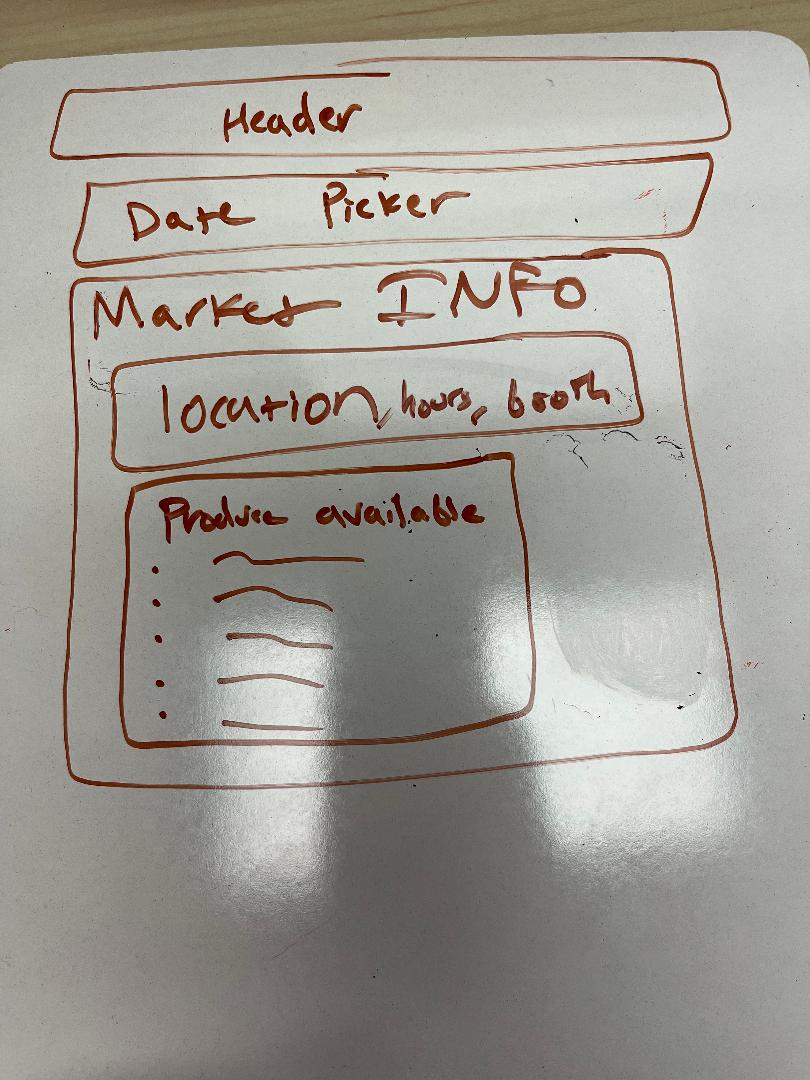 Header
Date Picker
Market INFO
location, hours, booth
Produce available